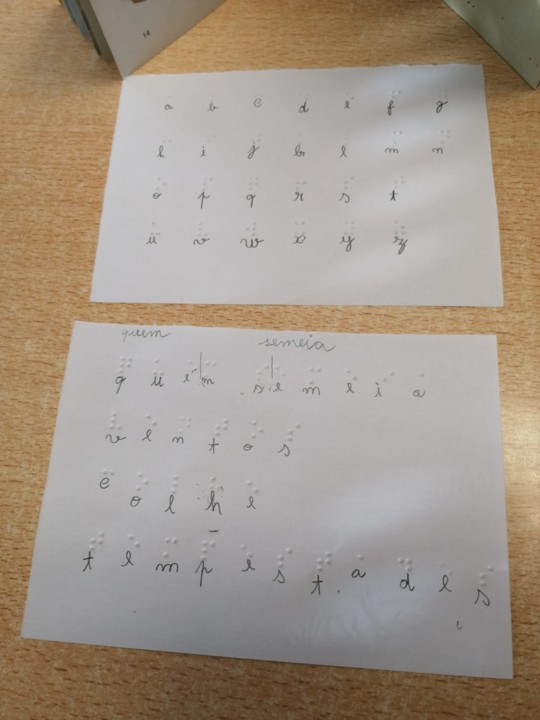 a b c d e f g
h i j k l m n
o p q r s t
u v w x y z
quem semeia
q u e m s e m e i a
v e n t o s
c o l h e
t e m p e s t a d e s